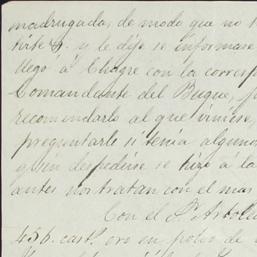 madrugada, de modo que no
y le dije se informase
llegó á Chagre con la corresp
Comandante del Buque,
recomendarle al que viniese,
preguntarle si tenía alguno
y sin despedirse se hizo á la
antes nos tratan con el mas
Con el Sr. Arbole
456. cast.s oro en polvo de